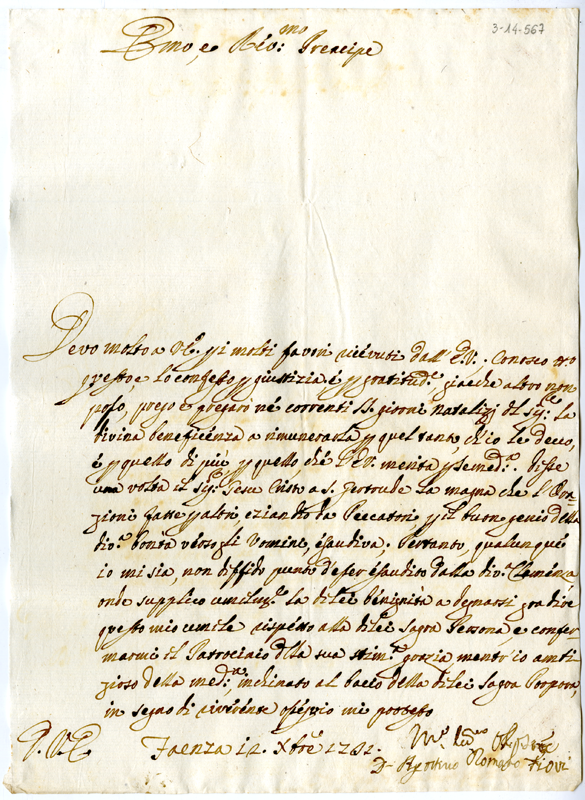 3-14-567
Emo, e Rev:mo Prencipe
Devo molto a V.E. p i molti favori ricevuti dall'E.V.. Conosco
questo e lo confesso p giustizia, é p gratitud.e giacche altro non
posso, prego e pregaró né correnti SS. giorni natalizj del Sig.e la
divina beneficenza a rimunerarla p quel tanto, ch'io le devo,
é p quello di più p quello, ché l'E.V. merita p se med.a. Disse
una volta il Sig.e Gesu Cristo a S. Gertrude la magna che l'Ora-
zioni fatte p altri, eziandio da Peccatori p il buon genio della
div.a bontá verso gli Uomini, ésaudiva; Pertanto, qualunqué
io mi sia, non diffido punto d'esser ésaudito dalla div.a Clemenza
onde supplico umilm.e la di lei benignitá a degnarsi gradire
questo mio umile rispetto alla di lei Sagra Persona e confer-
marmi il Patrocinio della sua stim.a grazia, mentr'io ambi-
zioso della med.a, inchinato al bacio della di lei Sagra Porpora
in segno di riverénte ossequio mi protesto
D. V. E.
Faenza 12. Xbre
D. Romano Fiovi